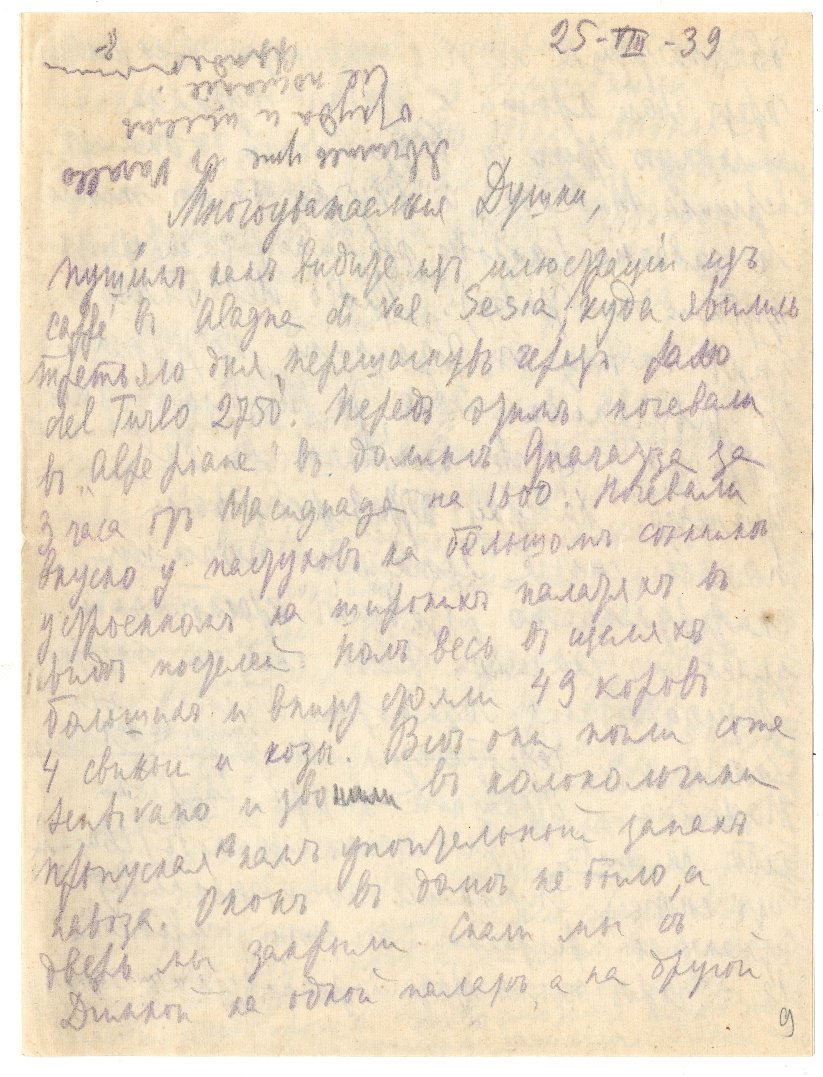 25-VIII-39
Многоуважаемыя Душки,
пишимъ, какъ видите изъ иллюстрацiи изъ
caffé въ Alagna di Val. Sesia, куда явились
третьяго дня, перещагнувъ черезъ
del Turlo 2750. Передъ этимъ ночевали
въ "Alpe piane" въ долинѣ за
3 часа отъ Macugnaga на 1600. Ночевали
вкусно у пастуховъ на большомъ сѣнникѣ
устроенномъ на широкихъ палатяхъ въ
видѣ постелей. Полъ весь въ щеляхъ
большихъ и внизу стояли 49 коровъ
4 свиньи и козы. Всѣ они
sentivano и звонили въ колокольчики
пропуская намъ упоительной запахъ
навоза. Оконъ въ домѣ не было, а
дверь мы закрыли. Спали мы съ
Диккой на одной палатѣ, а на другой
9